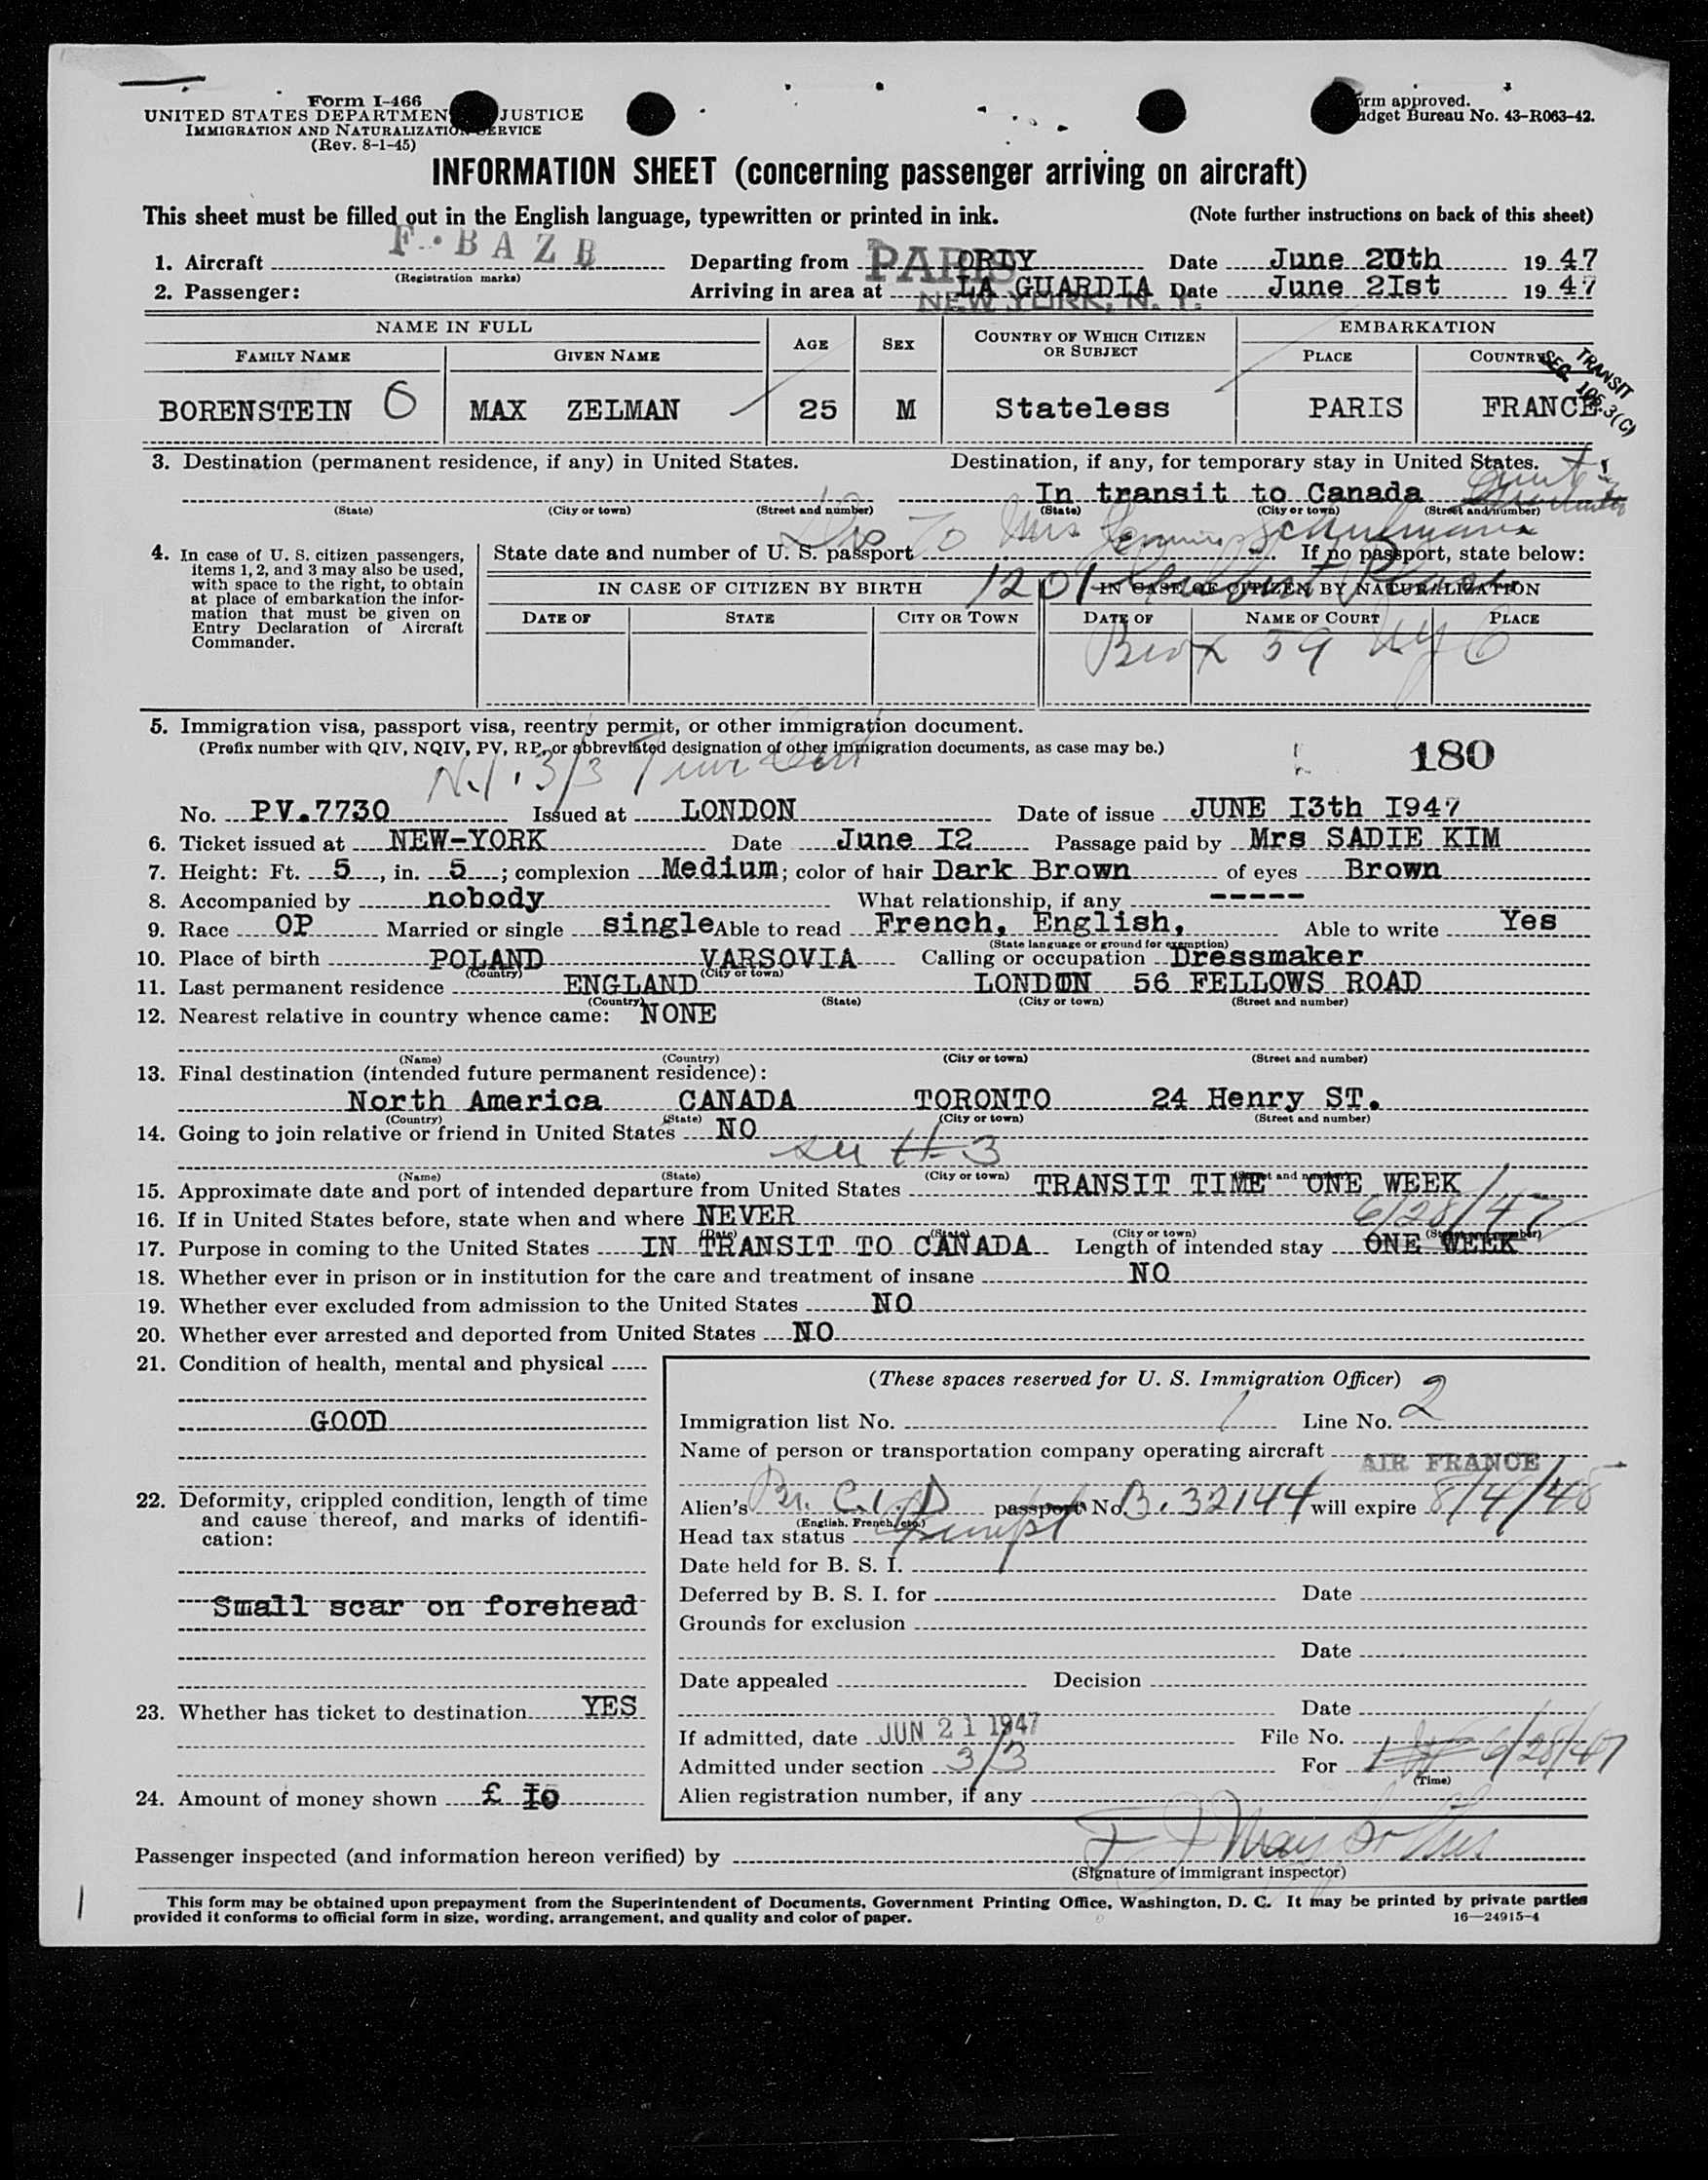 Form I-466
UNITED STATES DEPARTMEN JUSTICE
IMMIGRATION AND NATURALIZATION SERVICE
(Rev. 8-1-45)
orm approved.
udget Bureau No. 43-R063-42.
INFORMATION SHEET (concerning passenger arriving on aircraft)
This sheet must be filled out in the English language, typewritten or printed in ink. (Note further instructions on back of this sheet)
1. Aircraft F·BAZB Departing from PARIS ORLY Date June 20th 1947
(Registration marks)
2. Passenger: Arriving in area at LA GUARDIA Date June 2Ist 1947
NEW YORK, N. Y.
NAME IN FULL AGE SEX COUNTRY OF WHICH CITIZEN OR SUBJECT EMBARKATION
FAMILY NAME GIVEN NAME PLACE COUNTRY
TRANSIT
SEC. 105.3(C)
BORENSTEIN MAX ZELMAN 25 M Stateless PARIS FRANCE
3. Destination (permanent residence, if any) in United States. Destination, if any, for temporary stay in United States.
In transit to Canada
(State) (City or town) (Street and number) (State) (City or town) (Street and number)
To Mrs Schulman
4. In case of U. S. citizen passengers, items 1, 2, and 3 may also be used, with space to the right, to obtain at place of embarkation the information that must be given on Entry Declaration of Aircraft Commander.
State date and number of U. S. passport If no passport, state below:
1201
IN CASE OF CITIZEN BY BIRTH IN CASE OF CITIZEN BY NATURALIZATION
DATE OF STATE CITY OR TOWN DATE OF NAME OF COURT PLACE
Bronx 59 NY
5. Immigration visa, passport visa, reentry permit, or other immigration document.
(Prefix number with QIV, NQIV, PV, RP, or abbreviated designation of other immigration documents, as case may be.) 180
3/3
No. PV.7730 Issued at LONDON Date of issue JUNE I3th I947
6. Ticket issued at NEW-YORK Date June I2 Passage paid by Mrs SADIE KIM
7. Height: Ft. 5, in. 5; complexion Medium; color of hair Dark Brown of eyes Brown
8. Accompanied by nobody What relationship, if any -----
9. Race OP Married or single single Able to read French, English, Able to write Yes
(State language or ground for exemption)
10. Place of birth POLAND VARSOVIA Calling or occupation Dressmaker
(Country) (City or town)
11. Last permanent residence ENGLAND LONDON 56 FELLOWS ROAD
(Country) (State) (City or town) (Street and number)
12. Nearest relative in country whence came: NONE
(Name) (Country) (City or town) (Street and number)
13. Final destination (intended future permanent residence):
North America CANADA TORONTO 24 Henry ST.
(Country) (State) (City or town) (Street and number)
14. Going to join relative or friend in United States NO
su #3
(Name) (State) (City or town) (Street and number)
15. Approximate date and port of intended departure from United States TRANSIT TIME ONE WEEK
16. If in United States before, state when and where NEVER 6/28/47
(Date) (State) (City or town) (Street and number)
17. Purpose in coming to the United States IN TRANSIT TO CANADA Length of intended stay ONE WEEK
18. Whether ever in prison or in institution for the care and treatment of insane NO
19. Whether ever excluded from admission to the United States NO
20. Whether ever arrested and deported from United States NO
21. Condition of health, mental and physical
GOOD
22. Deformity, crippled condition, length of time and cause thereof, and marks of identification:
Small scar on forehead
23. Whether has ticket to destination YES
24. Amount of money shown £ Io
(These spaces reserved for U. S. Immigration Officer)
Immigration list No. 1 Line No. 2
Name of person or transportation company operating aircraft AIR FRANCE
Alien's Br. C.I.D passport No. B.32144 will expire 8/4/48
(English, French, etc.)
Head tax status Exempt
Date held for B. S. I.
Deferred by B. S. I. for Date
Grounds for exclusion
Date
Date appealed Decision
Date
If admitted, date JUN 21 1947 File No.
Admitted under section 3/3 For 6/28/47
(Time)
Alien registration number, if any
Passenger inspected (and information hereon verified) by
(Signature of immigrant inspector)
This form may be obtained upon prepayment from the Superintendent of Documents, Government Printing Office, Washington, D. C. It may be printed by private parties
provided it conforms to official form in size, wording, arrangement, and quality and color of paper. 16—24915-4